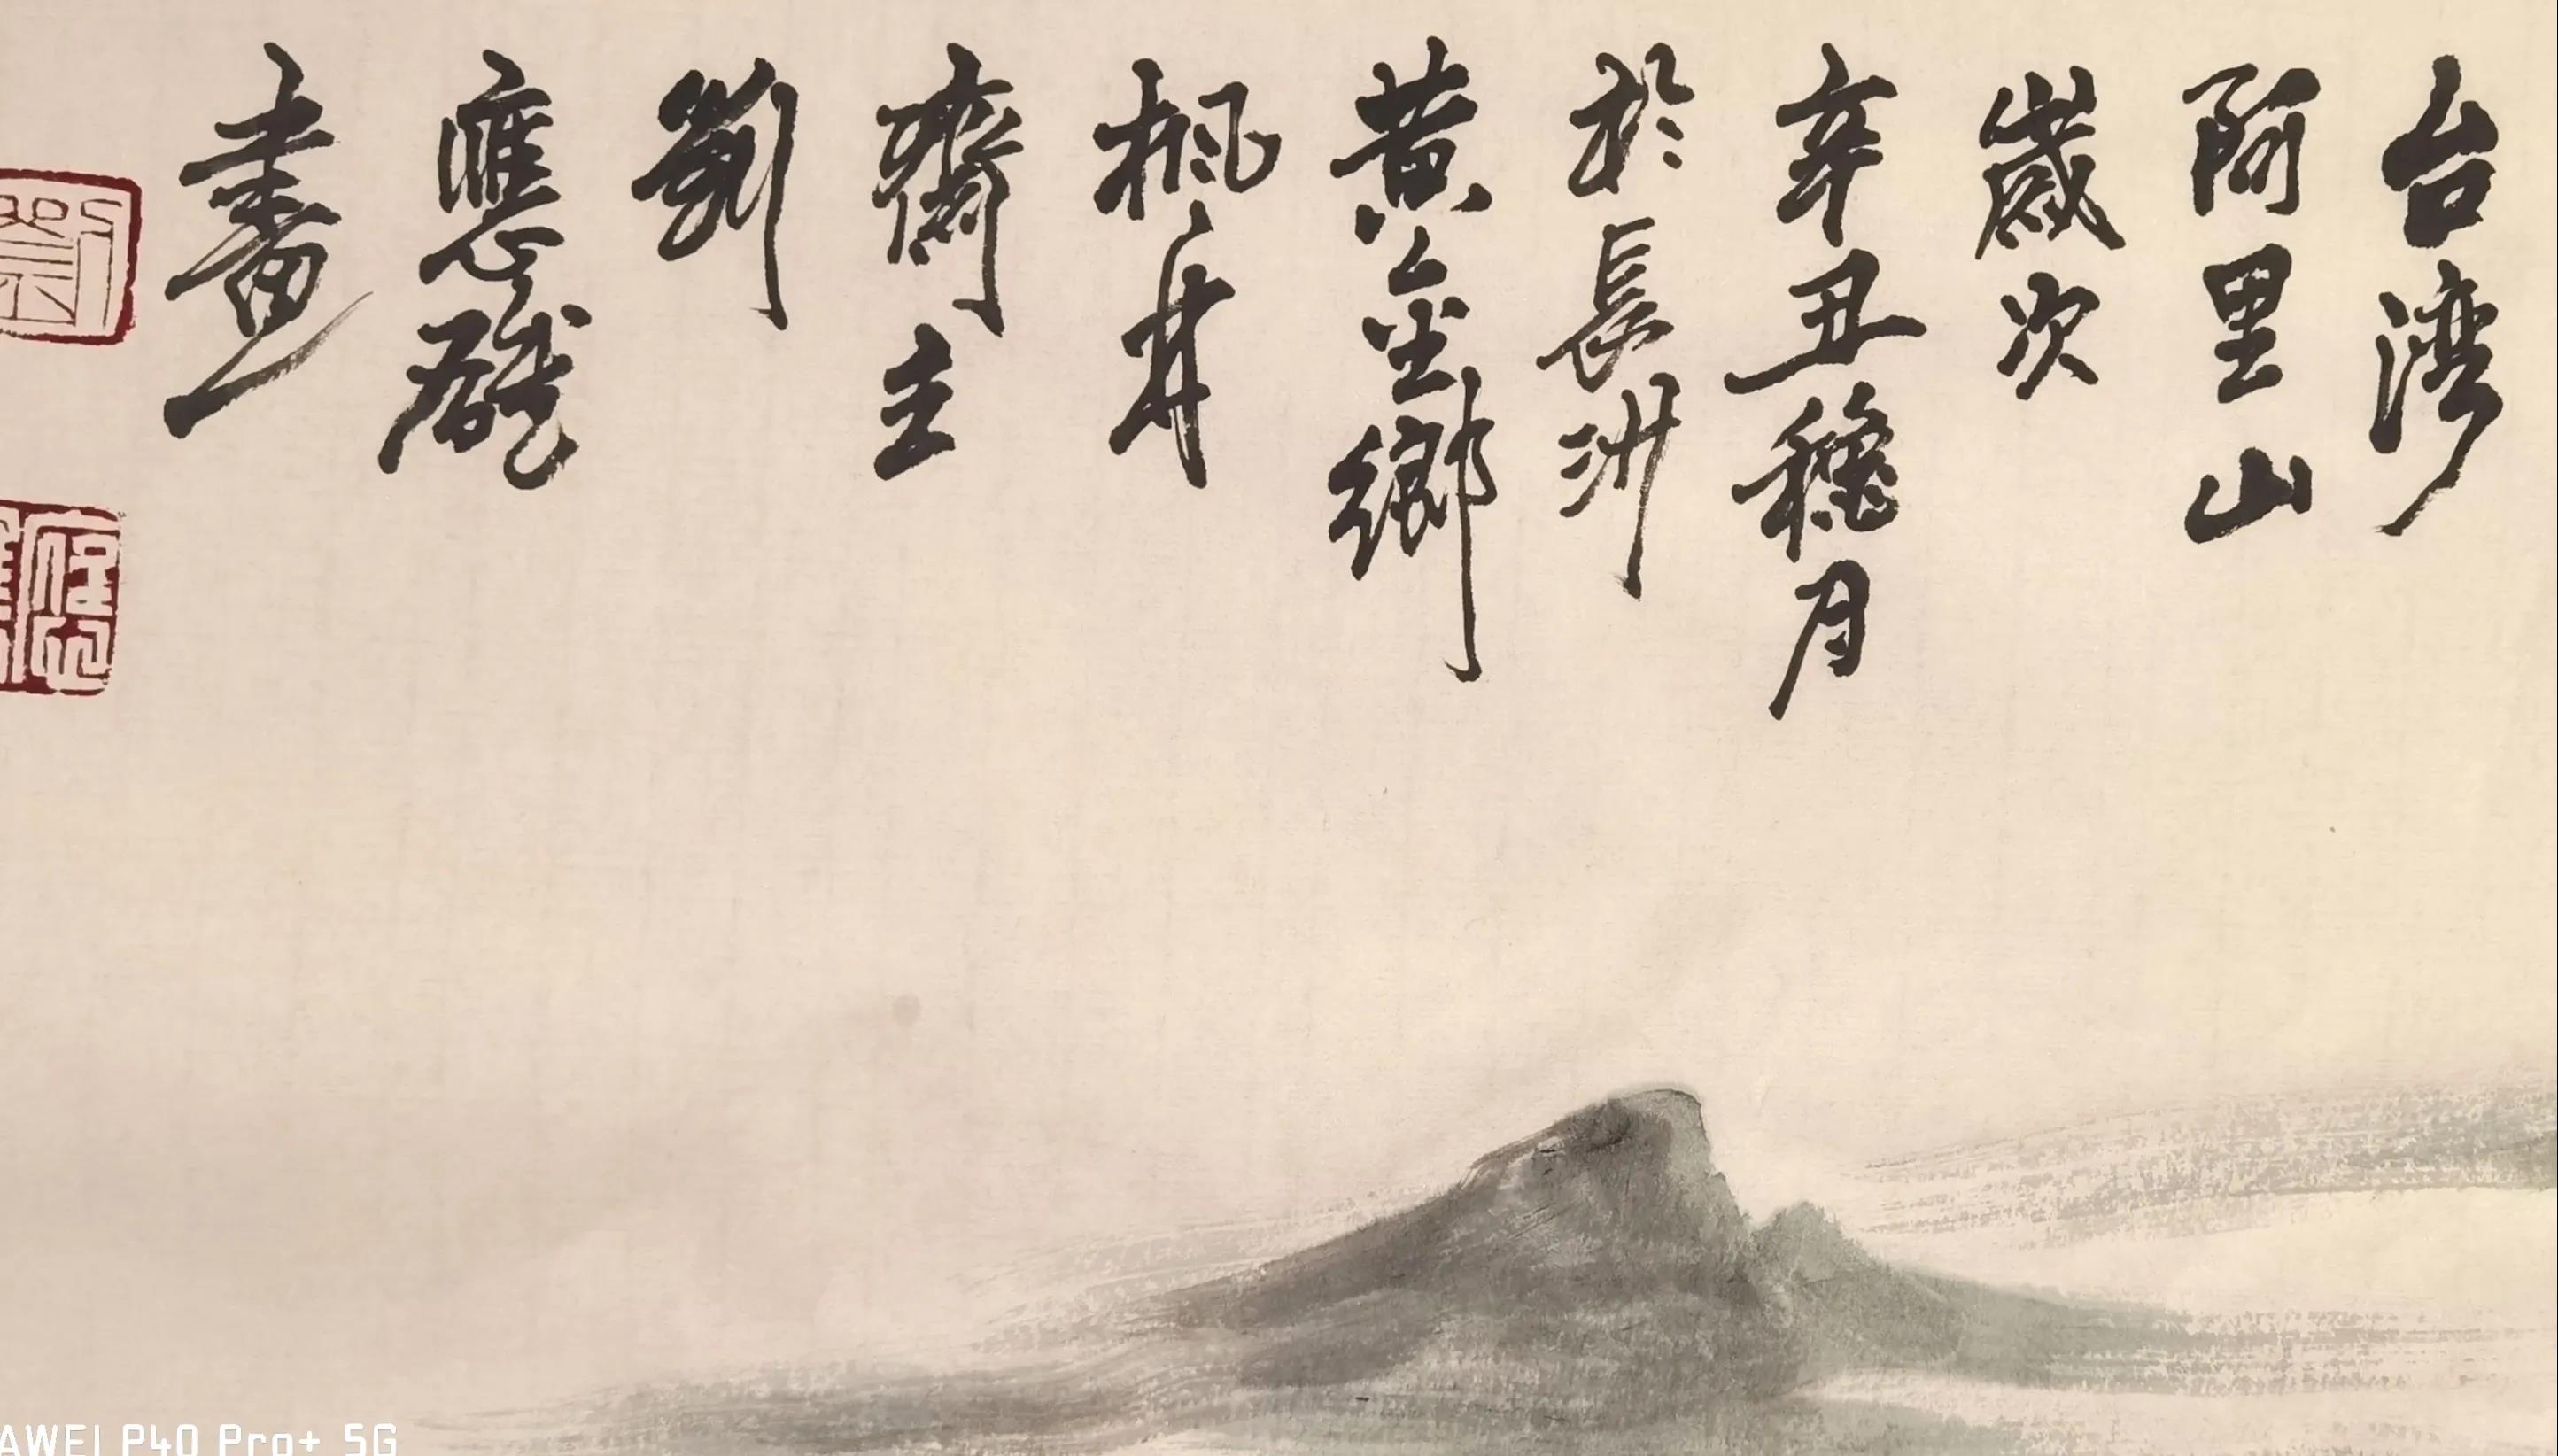 台湾
阿里山
歲次
辛丑穐月
於長洲
黄金鄉
楓丹
齋主
劉
應
畫
AWEI P40 Pro+ 5G